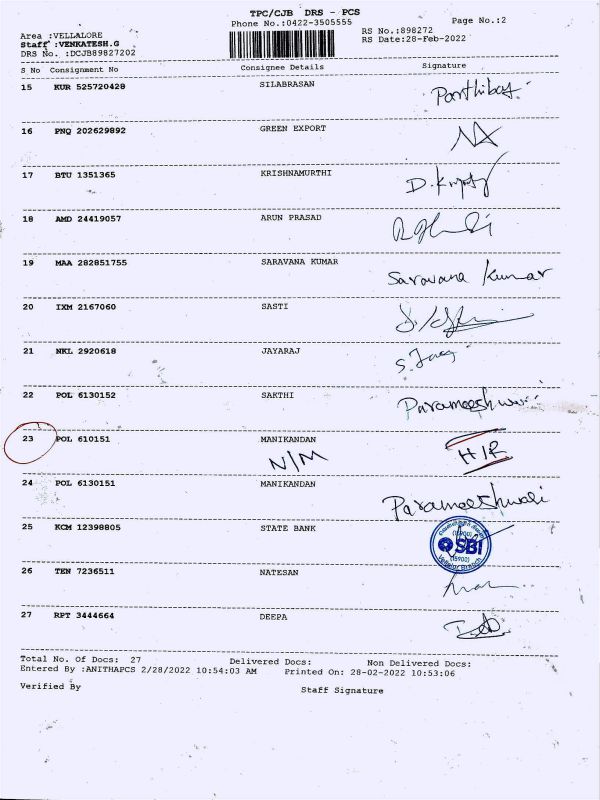 TPC/CJB DRS - PCS
Phone No.:0422-3505555
Page No.:2
Area :VELLALORE
RS No.:898272
Staff :VENKATESH.G
RS Date:28-Feb-2022
DRS No. :DCJB89827202
S No Consignment No Consignee Details Signature
15 KUR 525720428 SILABRASAN
16 PNQ 202629892 GREEN EXPORT
17 BTU 1351365 KRISHNAMURTHI
18 AMD 24419057 ARUN PRASAD
19 MAA 282851755 SARAVANA KUMAR Saravana Kumar
20 IXM 2167060 SASTI
21 NKL 2920618 JAYARAJ
22 POL 6130152 SAKTHI Parameeshwari
23 POL 610151 MANIKANDAN
N/M
24 POL 6130151 MANIKANDAN Parameeshwari
25 KCM 12398805 STATE BANK SBI
26 TEN 7236511 NATESAN
27 RPT 3444664 DEEPA
Total No. Of Docs: 27 Delivered Docs: Non Delivered Docs:
Entered By :ANITHAPCS 2/28/2022 10:54:03 AM Printed On: 28-02-2022 10:53:06
Verified By Staff Signature